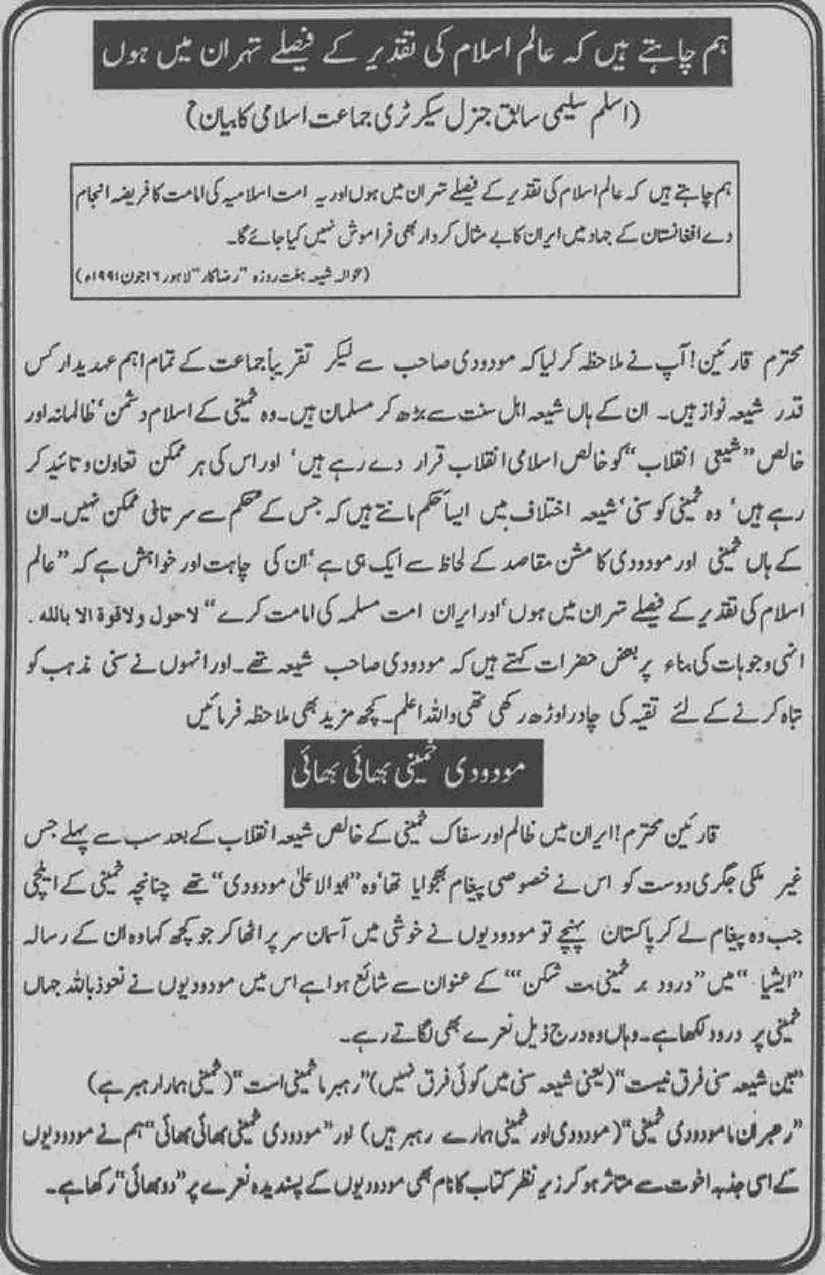 ہم چاہتے ہیں کہ عالم اسلام کی تقدیر کے فیصلے تہران میں ہوں
(اسلم سلیمی سابق جنرل سیکرٹری جماعت اسلامی کا بیان)
ہم چاہتے ہیں کہ عالم اسلام کی تقدیر کے فیصلے تہران میں ہوں اور یہ امت اسلامیہ کی امامت کا فریضہ انجام
دے افغانستان کے جہاد میں ایران کا بے مثال کردار بھی فراموش نہیں کیا جائے گا۔
(حوالہ شیعہ ہفت روزہ "رضاکار" لاہور ۱۶ جون ۱۹۹۱ء)
محترم قارئین! آپ نے ملاحظہ کر لیا کہ مودودی صاحب سے لیکر تقریباً جماعت کے تمام اہم عہدیدار کس
قدر شیعہ نواز ہیں۔ ان کے ہاں شیعہ اہل سنت سے بڑھ کر مسلمان ہیں۔ وہ خمینی کے اسلام دشمن' ظالمانہ اور
خالص "شیعی انقلاب" کو خالص اسلامی انقلاب قرار دے رہے ہیں' اور اس کی ہر ممکن تعاون و تائید کر
رہے ہیں' وہ خمینی کو سنی' شیعہ اختلاف میں ایسا حکم مانتے ہیں کہ جس کے حکم سے سرتابی ممکن نہیں۔ ان
کے ہاں خمینی اور مودودی کا مشن مقاصد کے لحاظ سے ایک ہی ہے' ان کی چاہت اور خواہش ہے کہ "عالم
اسلام کی تقدیر کے فیصلے تہران میں ہوں' اور ایران امت مسلمہ کی امامت کرے" لاحول ولاقوة الا بالله .
انہی وجوہات کی بناء پر بعض حضرات کہتے ہیں کہ مودودی صاحب شیعہ تھے۔ اور انہوں نے سنی مذہب کو
تباہ کرنے کے لئے تقیہ کی چادر اوڑھ رکھی تھی واللہ اعلم۔ کچھ مزید بھی ملاحظہ فرمائیں
مودودی خمینی بھائی بھائی
قارئین محترم! ایران میں ظالم اور سفاک خمینی کے خالص شیعہ انقلاب کے بعد سب سے پہلے جس
غیر ملکی جگری دوست کو اس نے خصوصی پیغام بھجوایا تھا' وہ "ابوالاعلیٰ مودودی" تھے چنانچہ خمینی کے ایلچی
جب وہ پیغام لے کر پاکستان پہنچے تو مودودیوں نے خوشی میں آسمان سر پر اٹھا کر جو کچھ کہا وہ ان کے رسالہ
"ایشیا" میں "درود بر خمینی بت شکن"' کے عنوان سے شائع ہوا ہے اس میں مودودیوں نے نعوذ باللہ جہاں
خمینی پر درود لکھا ہے۔ وہاں وہ درج ذیل نعرے بھی لگاتے رہے۔
"بین شیعہ سنی فرق نیست" (یعنی شیعہ سنی میں کوئی فرق نہیں) "رہبر ما خمینی است" (خمینی ہمارا رہبر ہے)
"رھبران ما مودودی خمینی" (مودودی اور خمینی ہمارے رہبر ہیں) اور "مودودی خمینی بھائی بھائی" ہم نے مودودیوں
کے اسی جذبہ اخوت سے متاثر ہو کر زیر نظر کتاب کا نام بھی مودودیوں کے پسندیدہ نعرے پر "دو بھائی" رکھا ہے۔